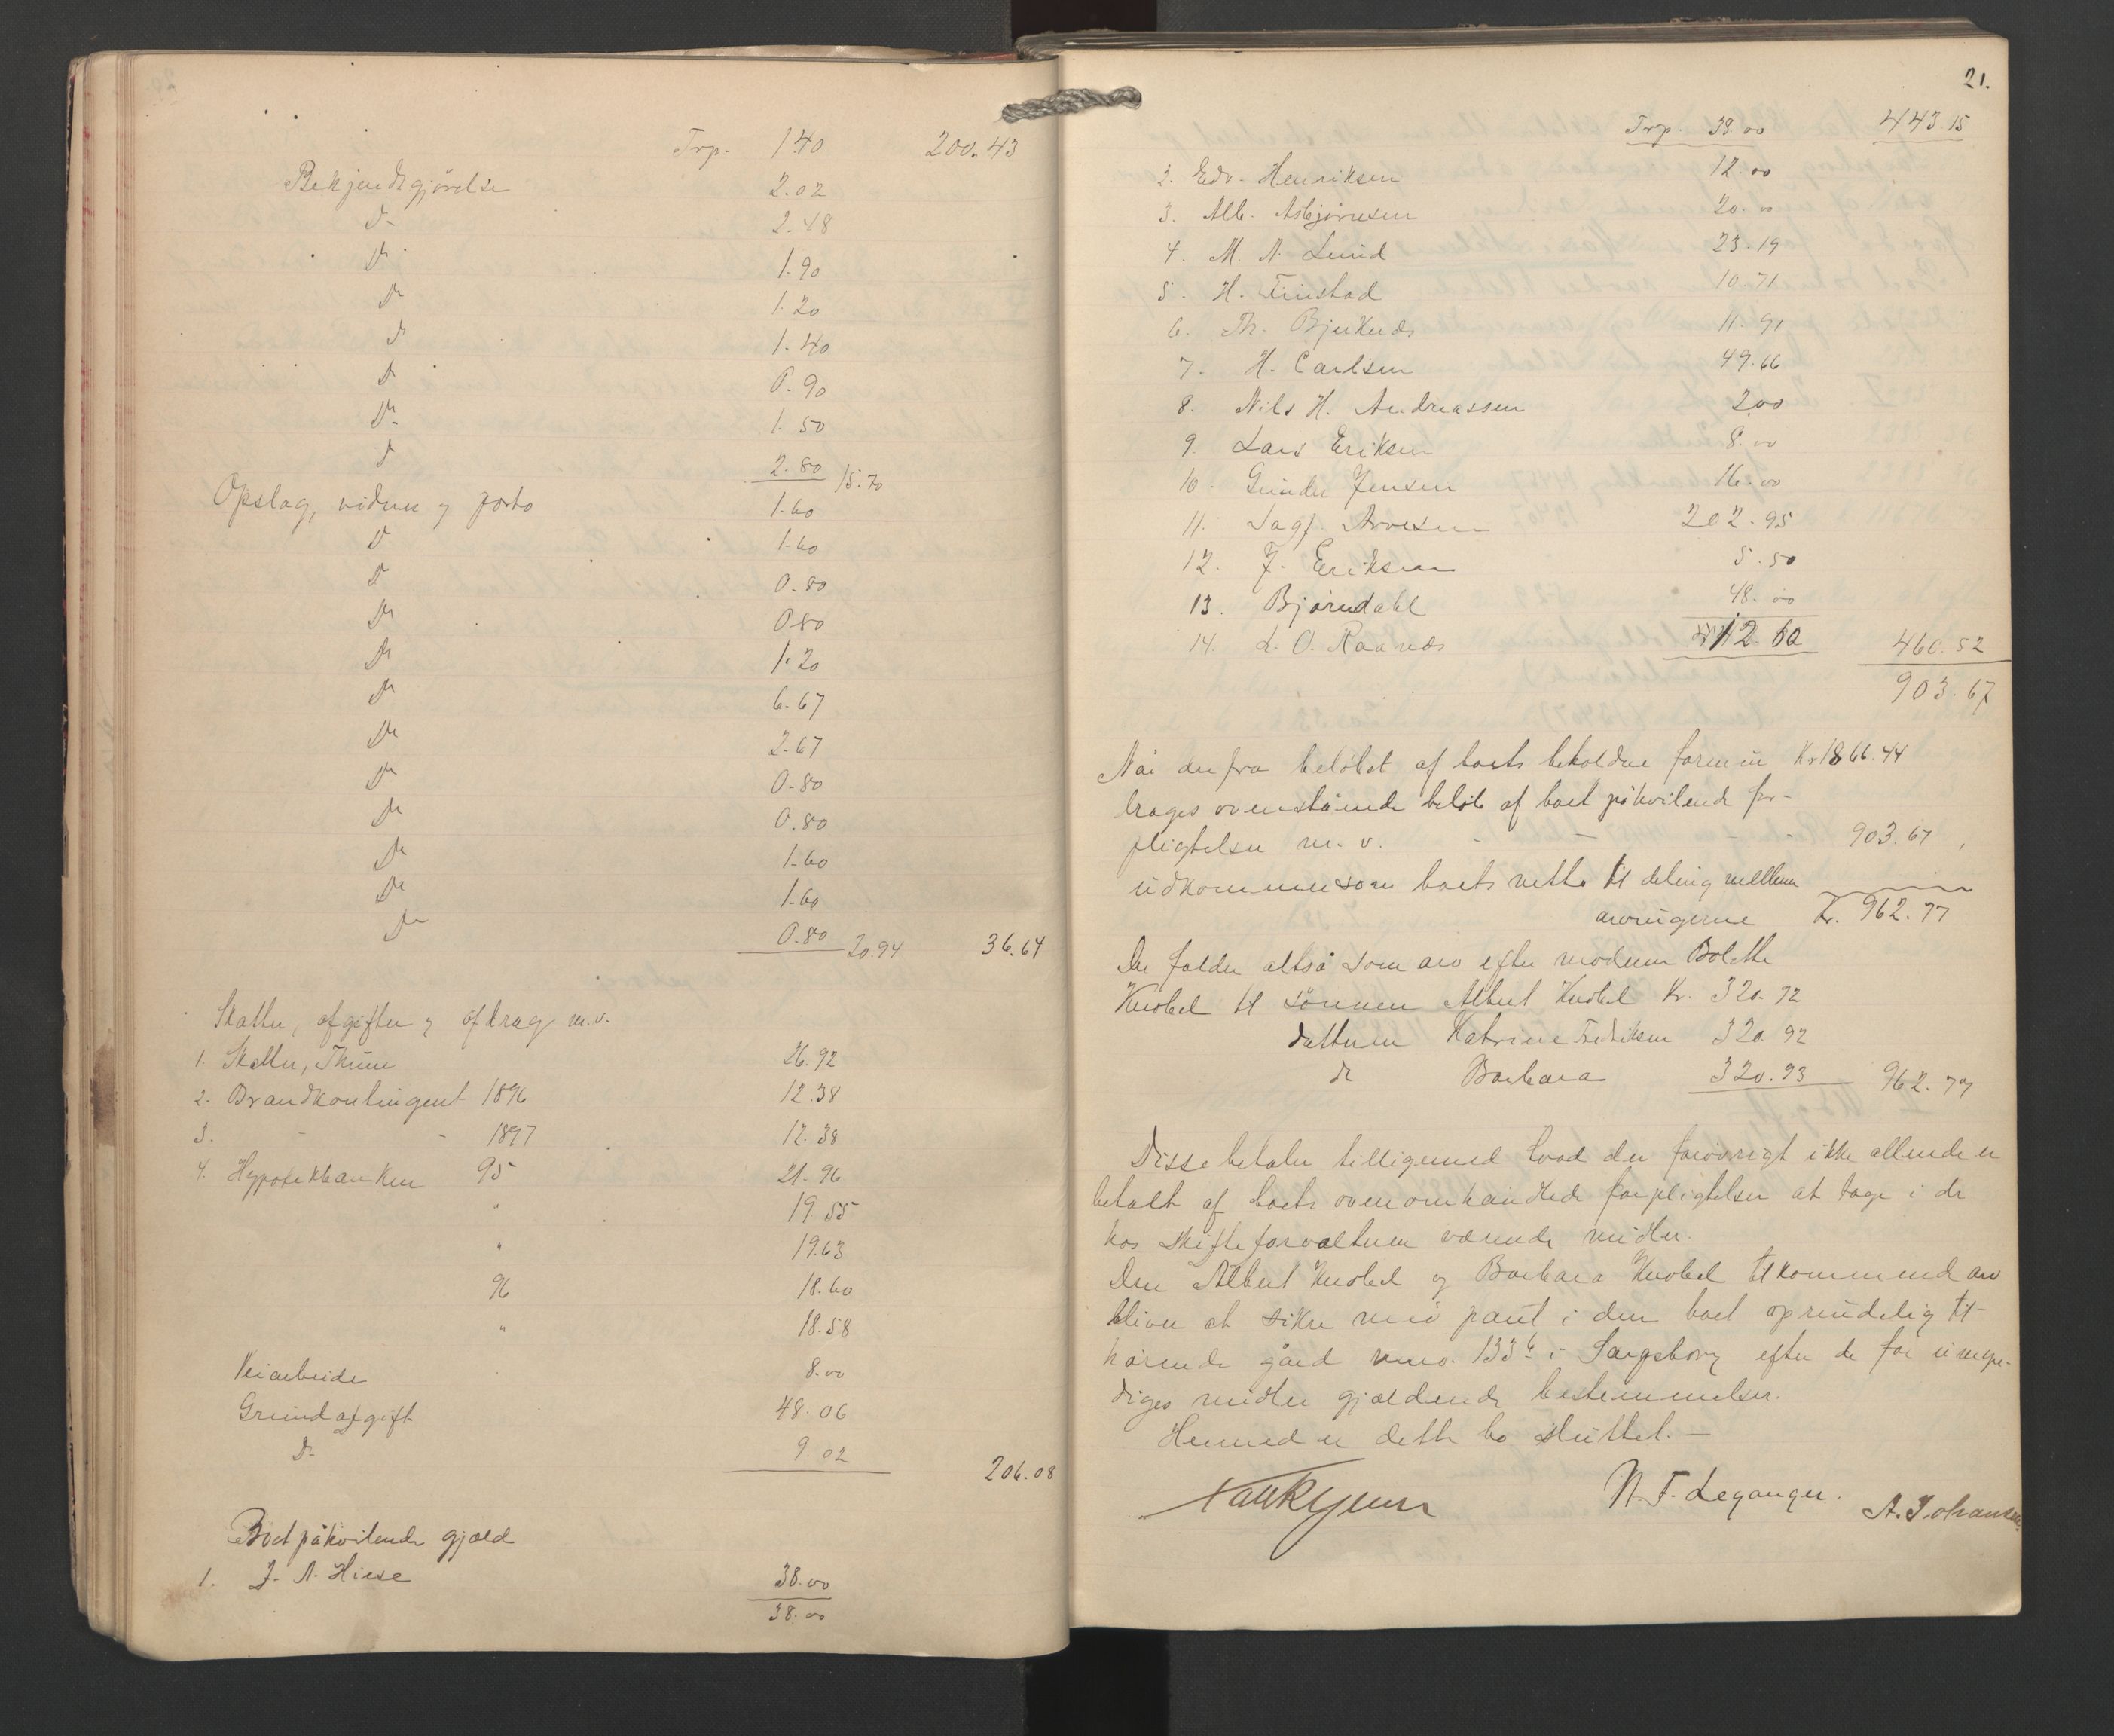 Trp. 1.40 200.43
Bekjendtgjörelse 2.02
Do 2.48
Do 1.90
Do 1.20
Do 1.40
Do 0.90
Do 1.50
Do 2.80 15.70
Opslag, vidner og porto 1.60
Do 1.60
Do 0.80
Do 0.80
Do 1.20
Do 6.67
Do 2.67
Do 0.80
Do 0.80
Do 1.60
Do 1.60
Do 0.80 20.94 36.64
Skatter, afgifter og afdrag m.v.
1. Skatter, Thune 26.92
2. Brandkontingent 1896 12.38
3. - - 1897 12.38
4. Hypotekbanken 95 21.96
" 19.55
" 19.63
96 18.60
" 18.58
Veiarbeide 8.00
Grundafgift 48.06
Do 9.02
206.08
Boet påhvilende gjæld
1. J. A. Hiese 38.00
38.00
21.
Trp. 38.00 443.15
2. Edv. Henriksen 12.00
3. Alb. Asbjörnsen 20.00
4. M. A. Lund 23.19
5. H. Finstad 10.71
6. Th. Bjerknæs 11.91
7. H. Carlsen 49.66
8. Nils H. Andreassen 2.00
9. Lars Eriksen 8.00
10. Gunder Jensen 16.00
11. Sagf. Arvesen 202.95
12. J. Eriksen 5.50
13. Björndahl 48.00
14. L. O. Raanæs 12.60 460.52
903.67
Når der fra belöbet af boets beholdne formue Kr 1866.44
drages ovenstående belöb af boet påhvilende for-
pligtelser m. v. - - - 903.67,
udkommer som boets netto til deling mellem
arvingerne Kr. 962.77
Der falder altså som arv efter moderen Bolette
Knobel til sönnen Albert Knobel Kr. 320.92
datteren Katrine Fredriksen 320.92
do Barbara 320.93 962.77
Disse betaler tilligemed hvad der forövrigt ikke allerede er
betalt af boets ovenomhandlede forpligtelser at tage i de
hos skifteforvalteren værende midler.
Den Albert Knobel og Barbara Knobel tilkommende arv
bliver at sikre med pant i den boet oprindelig til-
hörende gård mno. 133b i Sarpsborg efter de for umyn-
diges midler gjældende bestemmelser.
Hermed er dette bo sluttet. —
N. F. Leganger. A. Johansen